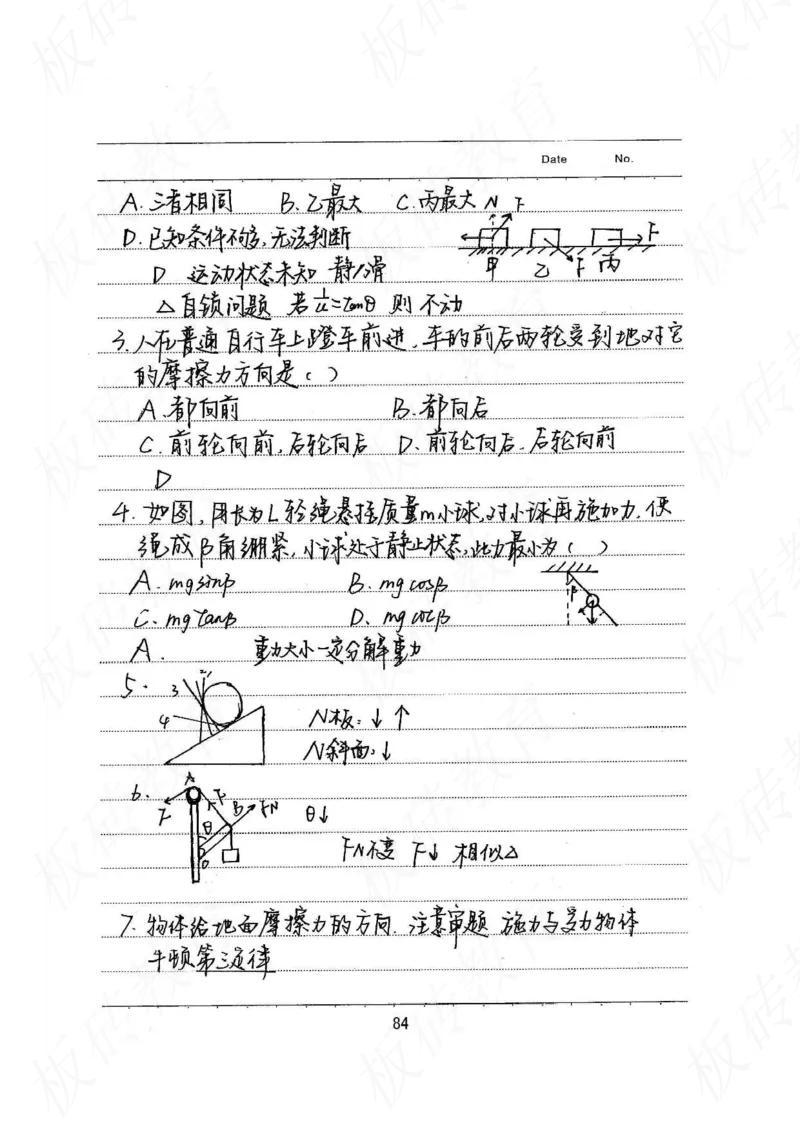 Date No.
A. 三者相同 B. 乙最大 C. 丙最大 N F
D. 已知条件不够, 无法判断 F
甲 乙 F 丙
D 运动状态未知 静/滑
△自锁问题 若 1/μ=tanθ 则不动
3. 人在普通自行车上蹬车前进, 车的前后两轮受到地对它
的摩擦力方向是( )
A. 都向前 B. 都向后
C. 前轮向前, 后轮向后 D. 前轮向后. 后轮向前
D
4. 如图, 用长为L轻绳悬挂质量m小球, 对小球再施加力, 使
绳成β角绷紧, 小球处于静止状态, 此力最小为( )
A. mgsinβ B. mgcosβ
β
C. mgtanβ D. mgcotβ
A. 重力大小一定分解重力
5. 3
4 N板: ↓ ↑
N斜面: ↓
6. A
F F B FN θ↓
θ
O FN不变 F↓ 相似△
7. 物体给地面摩擦力的方向. 注意审题 施力与受力物体
牛顿第三定律
84
板砖教育